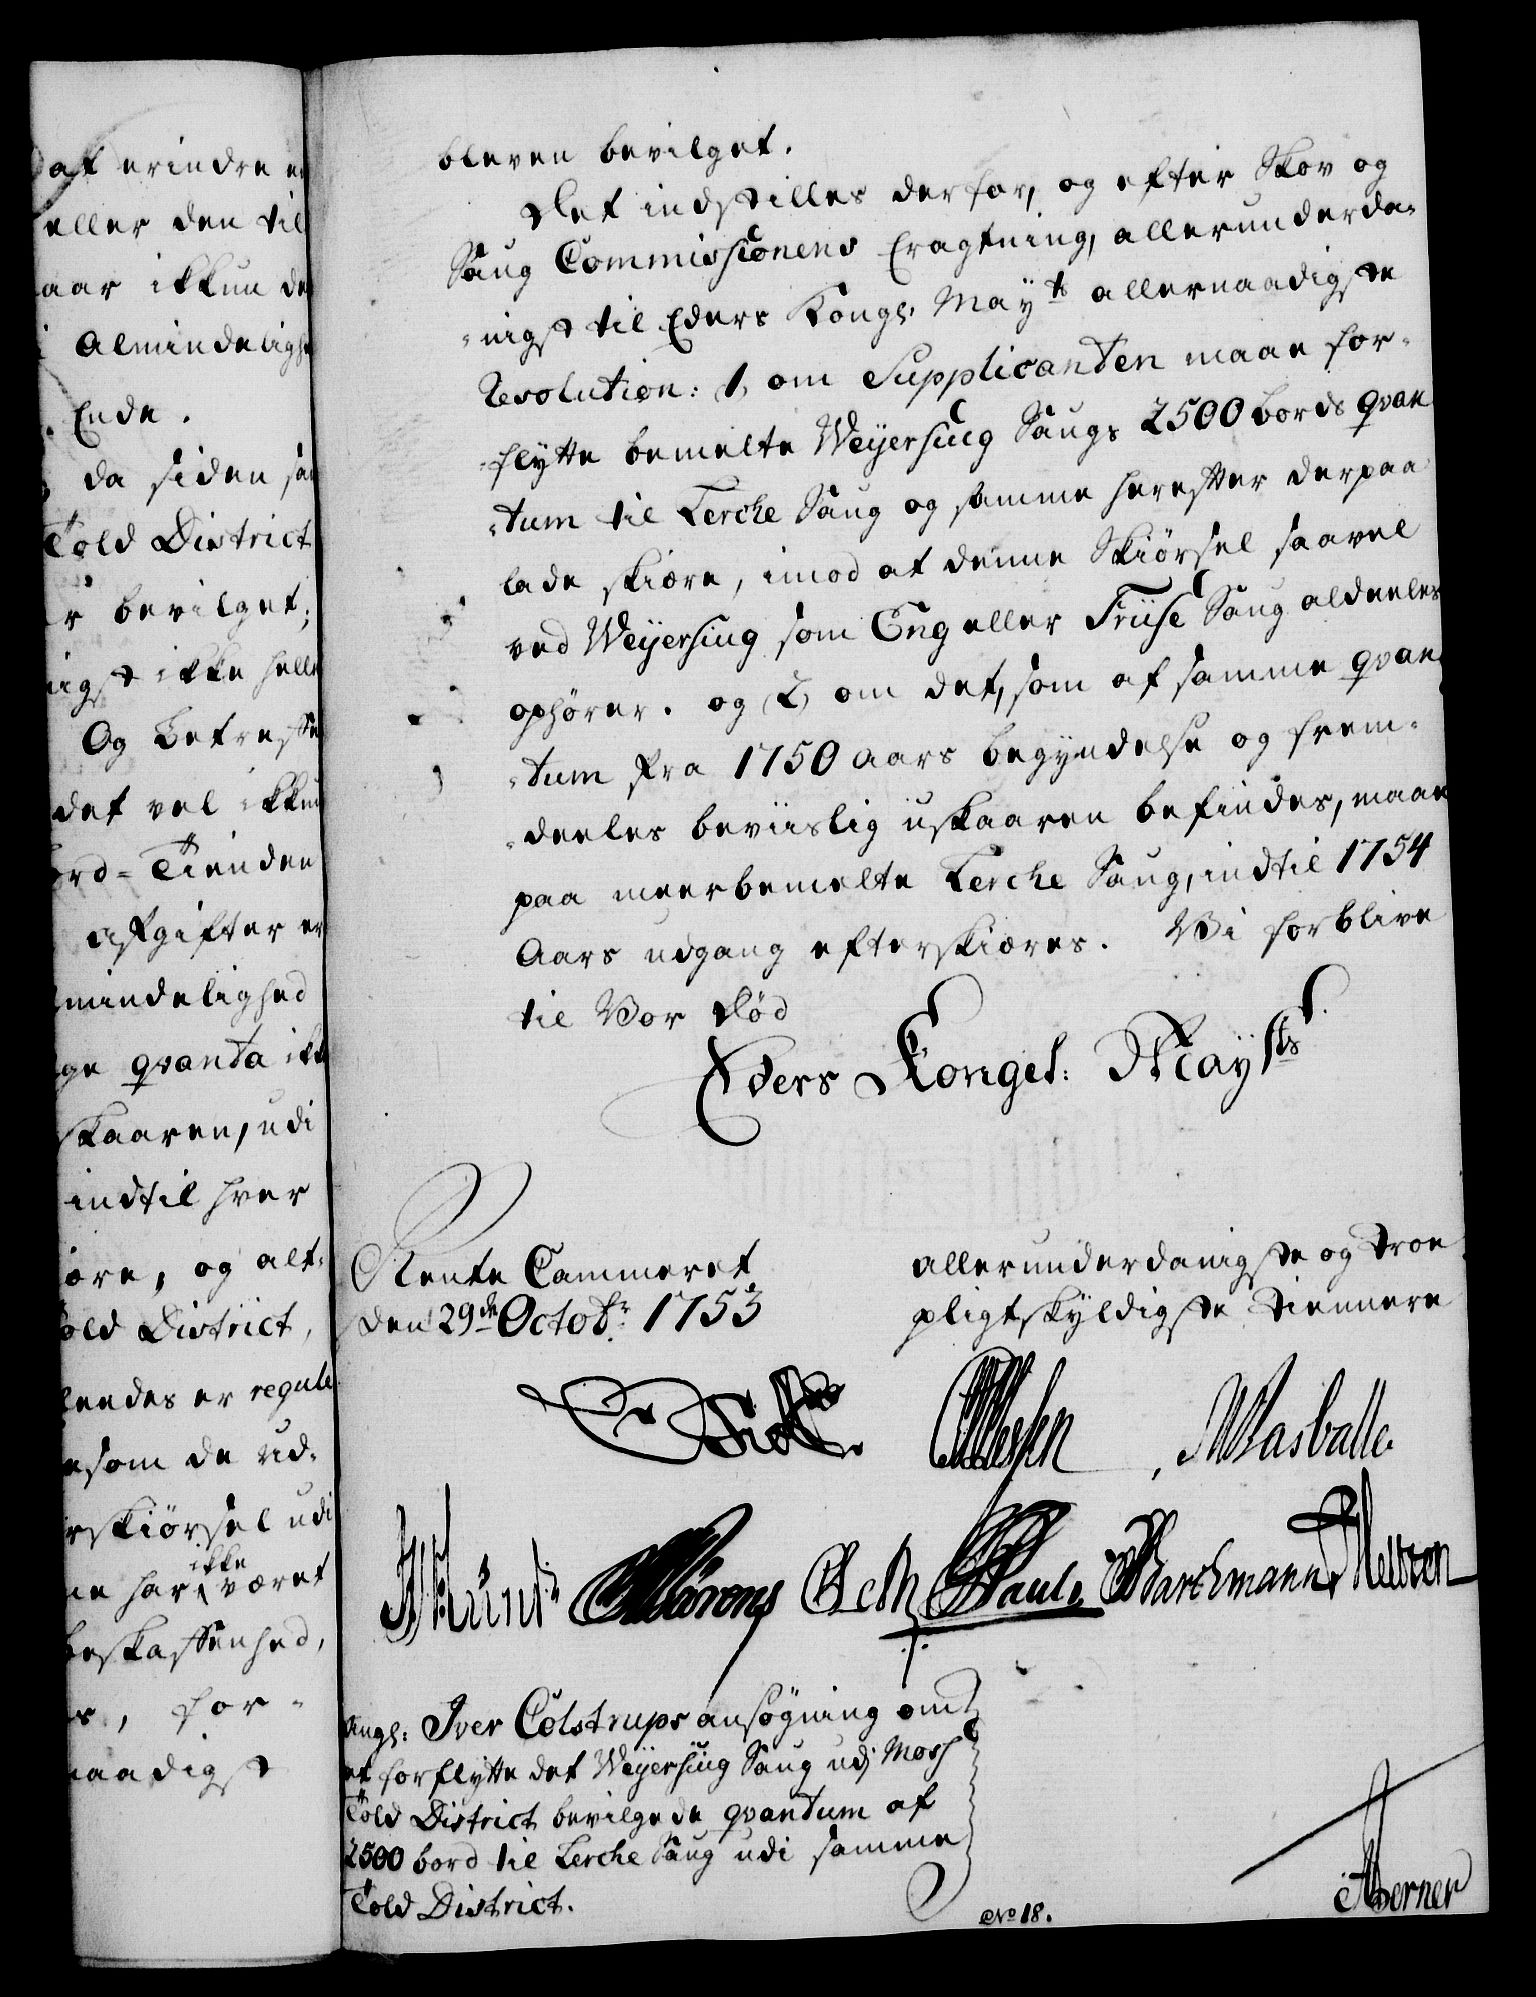 at erindre
eller den til
aar ikkun de
Almindeligh
Ende.
da siden
Told District
bevilget;
ikke
Og betreffe
det vel ikkun
Tienden
afgifter er
mindelighed
qvanta ikk
skaaren, udi
indtil hver
og alt-
old District,
er regule
som de ud-
skiørsel udi
ikke
har været
beskaffenhed,
for-
naadigst
bleven bevilget.
Det indstilles derfor, og efter Skov og
Saug Commissionens Eragtning, allerunderda-
-nigst til Eders Kongl. Mayts allernaadigste
Resolution: 1, om Supplicanten maae for-
-flytte bemelte Weyersiug Saugs 2500 bords qvan
-tum til Lerche Saug og samme herefter derpaa
lade skiære, imod at denne Skiørsel saavel
ved Weyersiug som Eng eller Friise Saug aldeeles
ophører. og 2, om det, som af samme qvan-
-tum fra 1750 Aars begyndelse og frem-
-deeles beviislig uskaaren befindes, maae
paa meerbemelte Lerche Saug, indtil 1754
Aars udgang efterskiæres. Vi forblive
til Vor Død
Eders Kongel: Mayts
Rente Cammeret
den 29de Octobr: 1753
allerunderdanigste og troe
pligtskyldigste tiennere
Barchmann
Angl: Iver Colstrups ansøgning om
at forflytte det Weyersiug Saug udj Moss
Told District bevilgede qvantum af
2500 bord til Lerche Saug udi samme
Told District.
No 18.
Berner